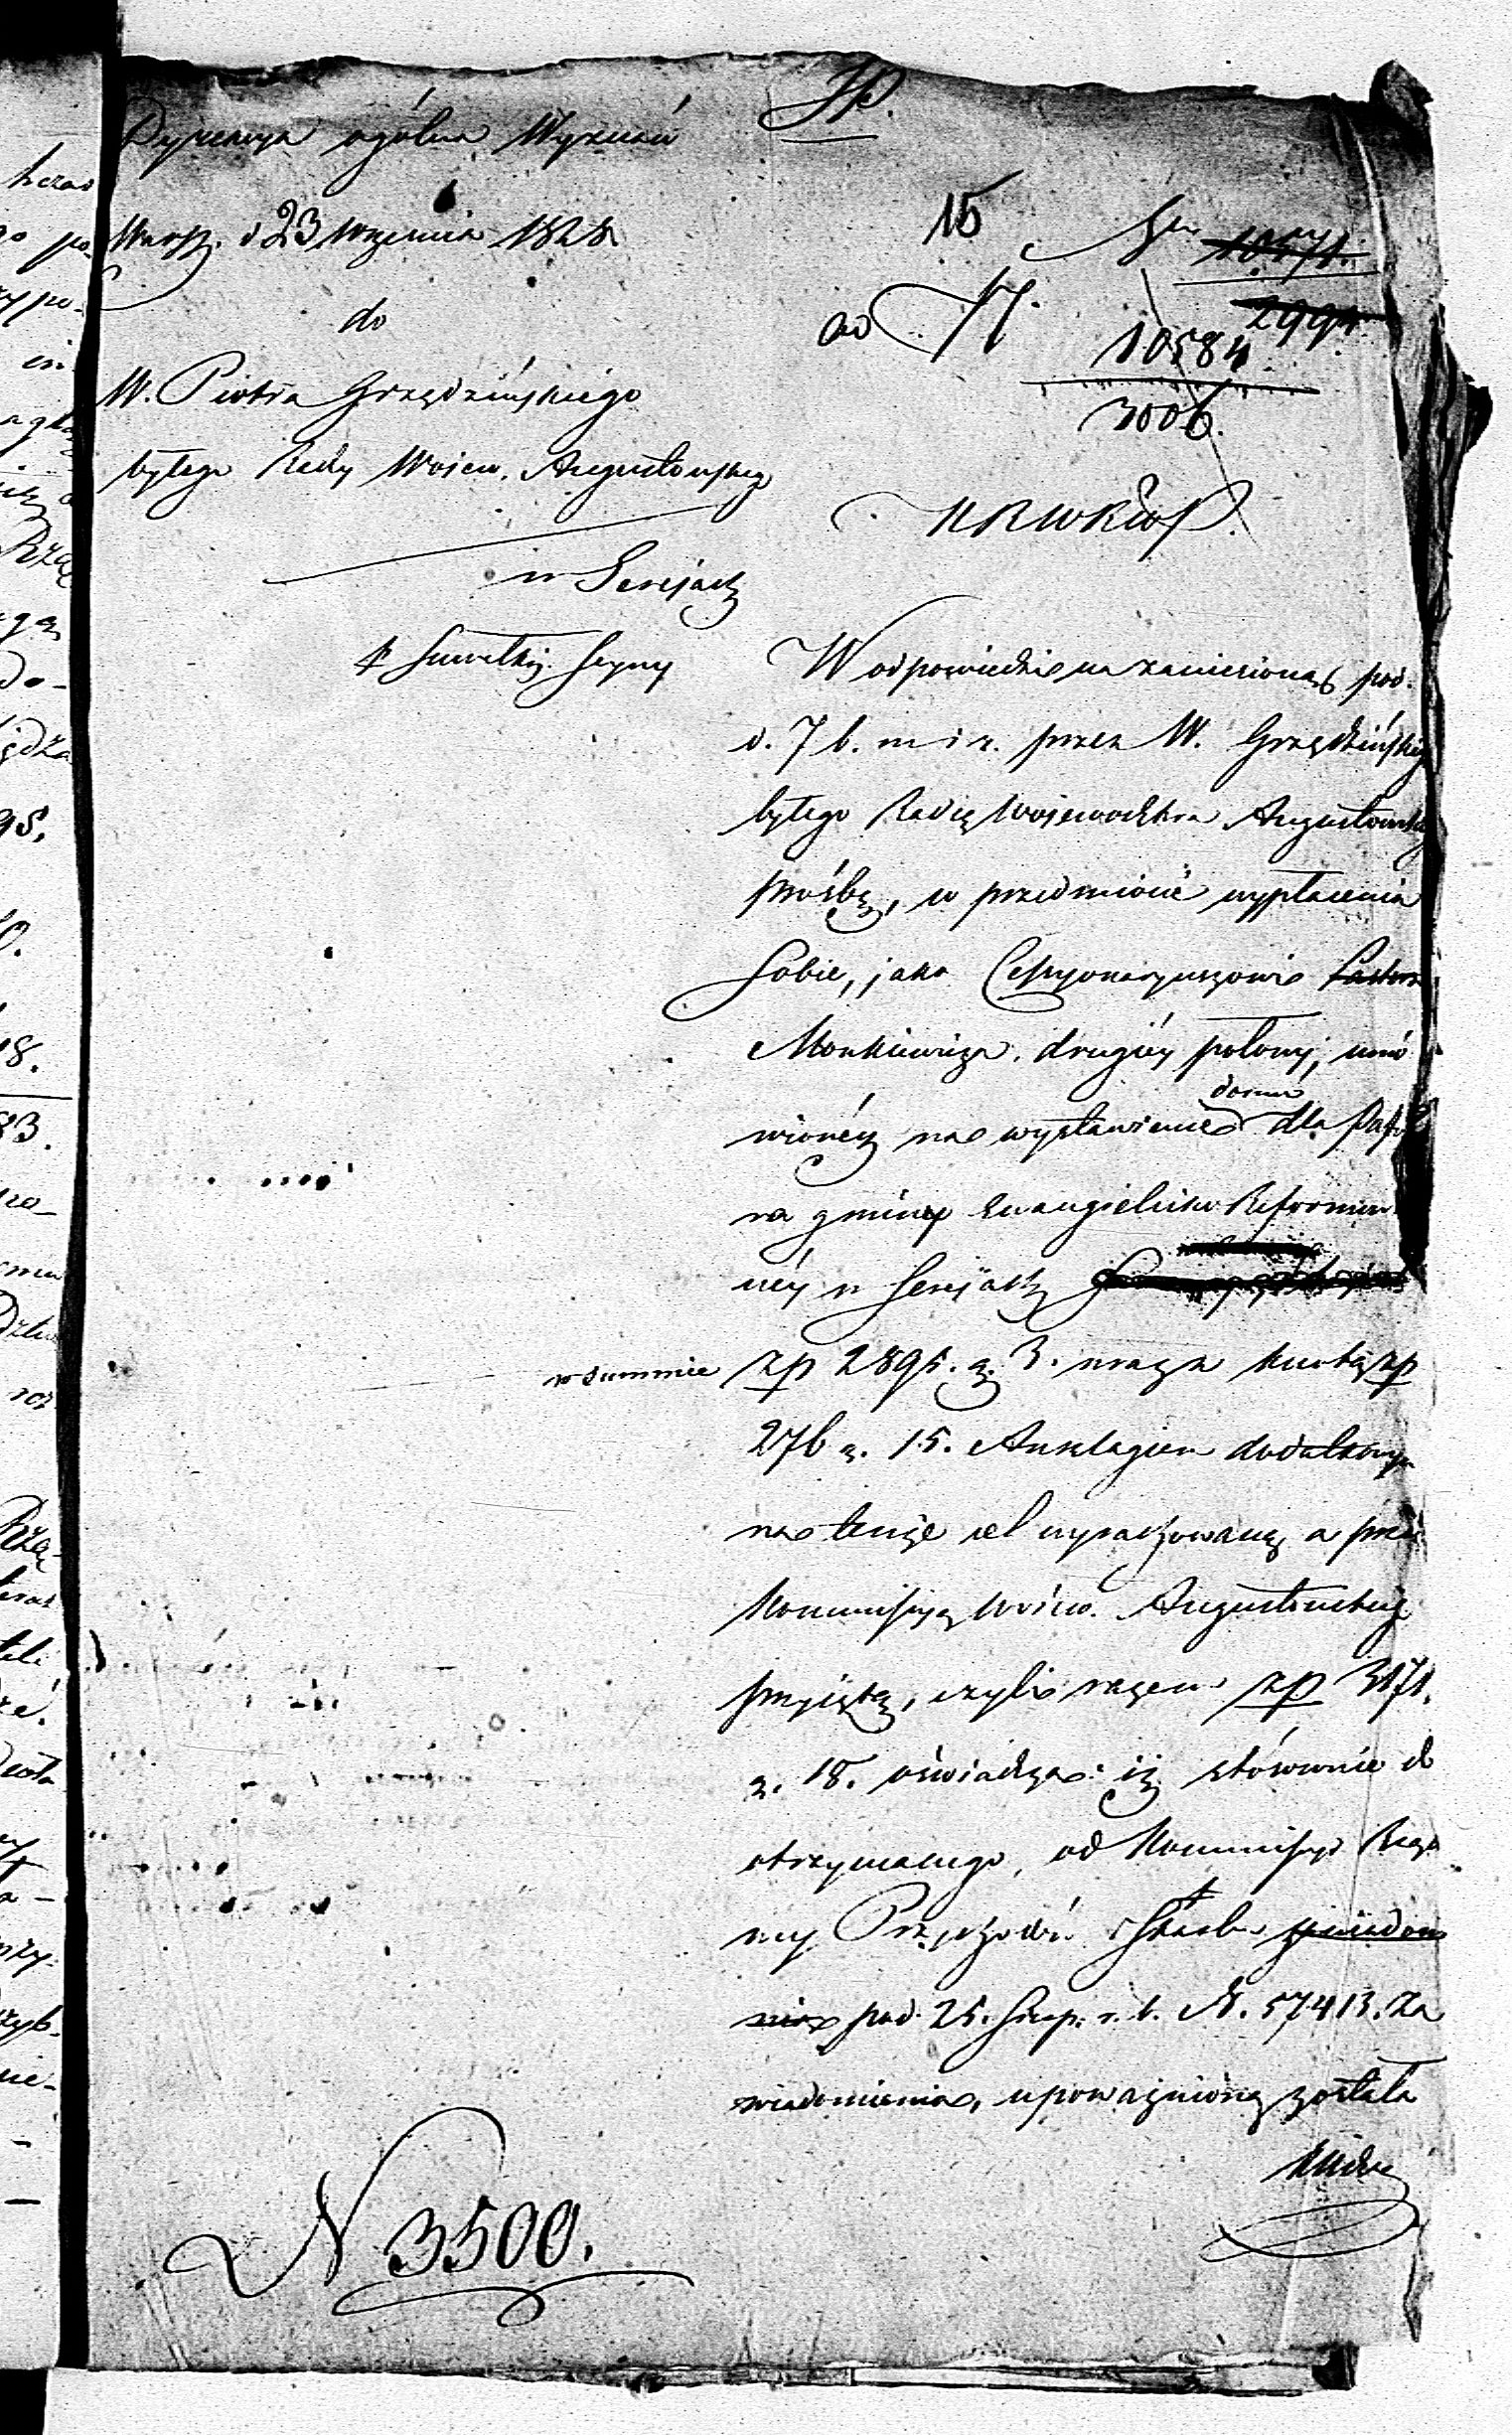 Dyrekcya ogólna Wyznań
Warsz. d 23 Września 1828
do
W. Piotra Grzędzińskiego
byłego Radcy Wojew. Augustowskiego
w Serejach
p Suwałki Seyny
15
ad 17.
10584
3006.
KRWRiOP.
W odpowiedzi na zaniesioną pod
d. 7 b. m i r. przez W. Grzędzińskiego
byłego Radcę Województwa Augustowsk
prośbę, w przedmiocie wypłacenia
Sobie, jako Cessyonaryuszowi Pastora
Monkiewicza, drugiéy połowy, umó
domu
wionéy na wystawienie dla Pasto
ra gminy Ewangielicko Reformowa
néy w Serejach
w summie zp 2895. g. 3. wraz z kwotą zp
276 g. 15. Anszlagiem dodatkowym
na tenże cel wyrachowaną a przez
Kommissyą Wojew. Augustowskiego
przyjętą, czyli razem zp 3171.
g. 18. oświadcza: iż stósownie do
otrzymanego, od Kommissyi Rządo
wey Przychodów i Skarbu
pod 25. Sierp. r. b. N. 57413. za
wiadomienia, upoważnioną została
N 3500.